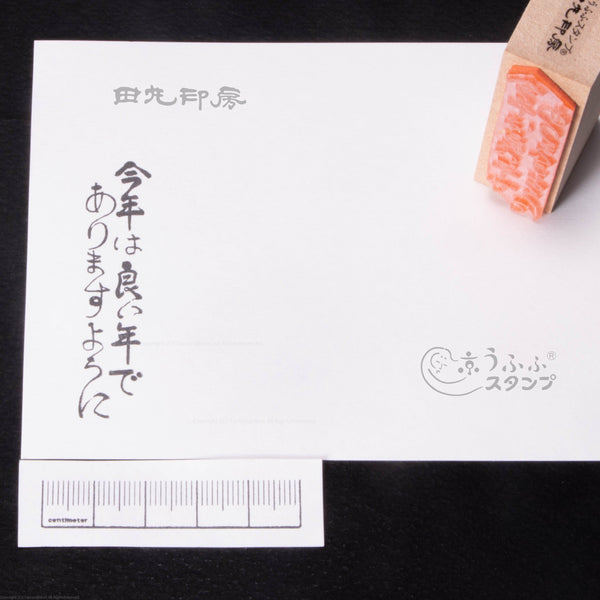 田丸印房
今年は良い年で
ありますように
京うふふ®
スタンプ
centimeter